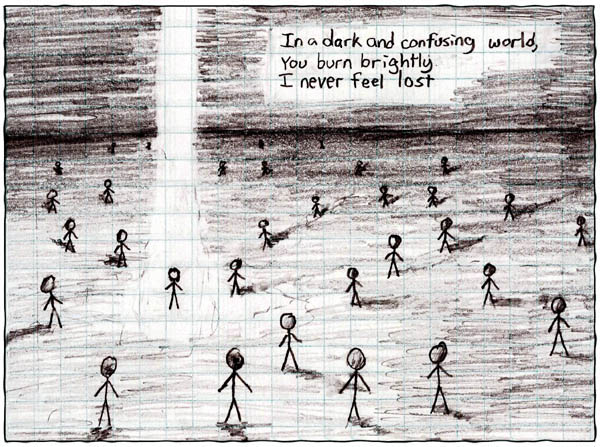 In a dark and confusing world,
You burn brightly
I never feel lost